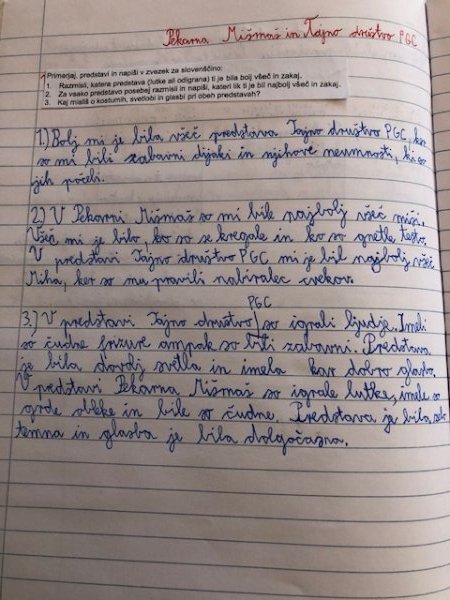 Pekarna Mišmaš in Tajno društvo PGC
Primerjaj, predstavi in napiši v zvezek za slovenščino:
1. Razmisli, katera predstava (lutke ali odigrana) ti je bila bolj všeč in zakaj.
2. Za vsako predstavo posebej razmisli in napiši, kateri lik ti je bil najbolj všeč in zakaj.
3. Kaj misliš o kostumih, svetlobi in glasbi pri obeh predstavah?
1.) Bolj mi je bila všeč predstava Tajno društvo PGC, ker
so mi bili zabavni dijaki in njihove neumnosti, ki so
jih počeli.
2.) V Pekarni Mišmaš so mi bile najbolj všeč miši.
Všeč mi je bilo, ko so se kregale in ko so gnetle testo.
V predstavi Tajno društvo PGC mi je bil najbolj všeč
Miha, ker so mu pravili nabiralec cvekov.
PGC
3.) V predstavi Tajno društvo so igrali ljudje. Imeli
so čudne frizure ampak so bili zabavni. Predstava
je bila dovolj svetla in imela kar dobro glasbo.
V predstavi Pekarna Mišmaš so igrale lutke, imele so
grde obleke in bile so čudne. Predstava je bila zelo
temna in glasba je bila dolgočasna.